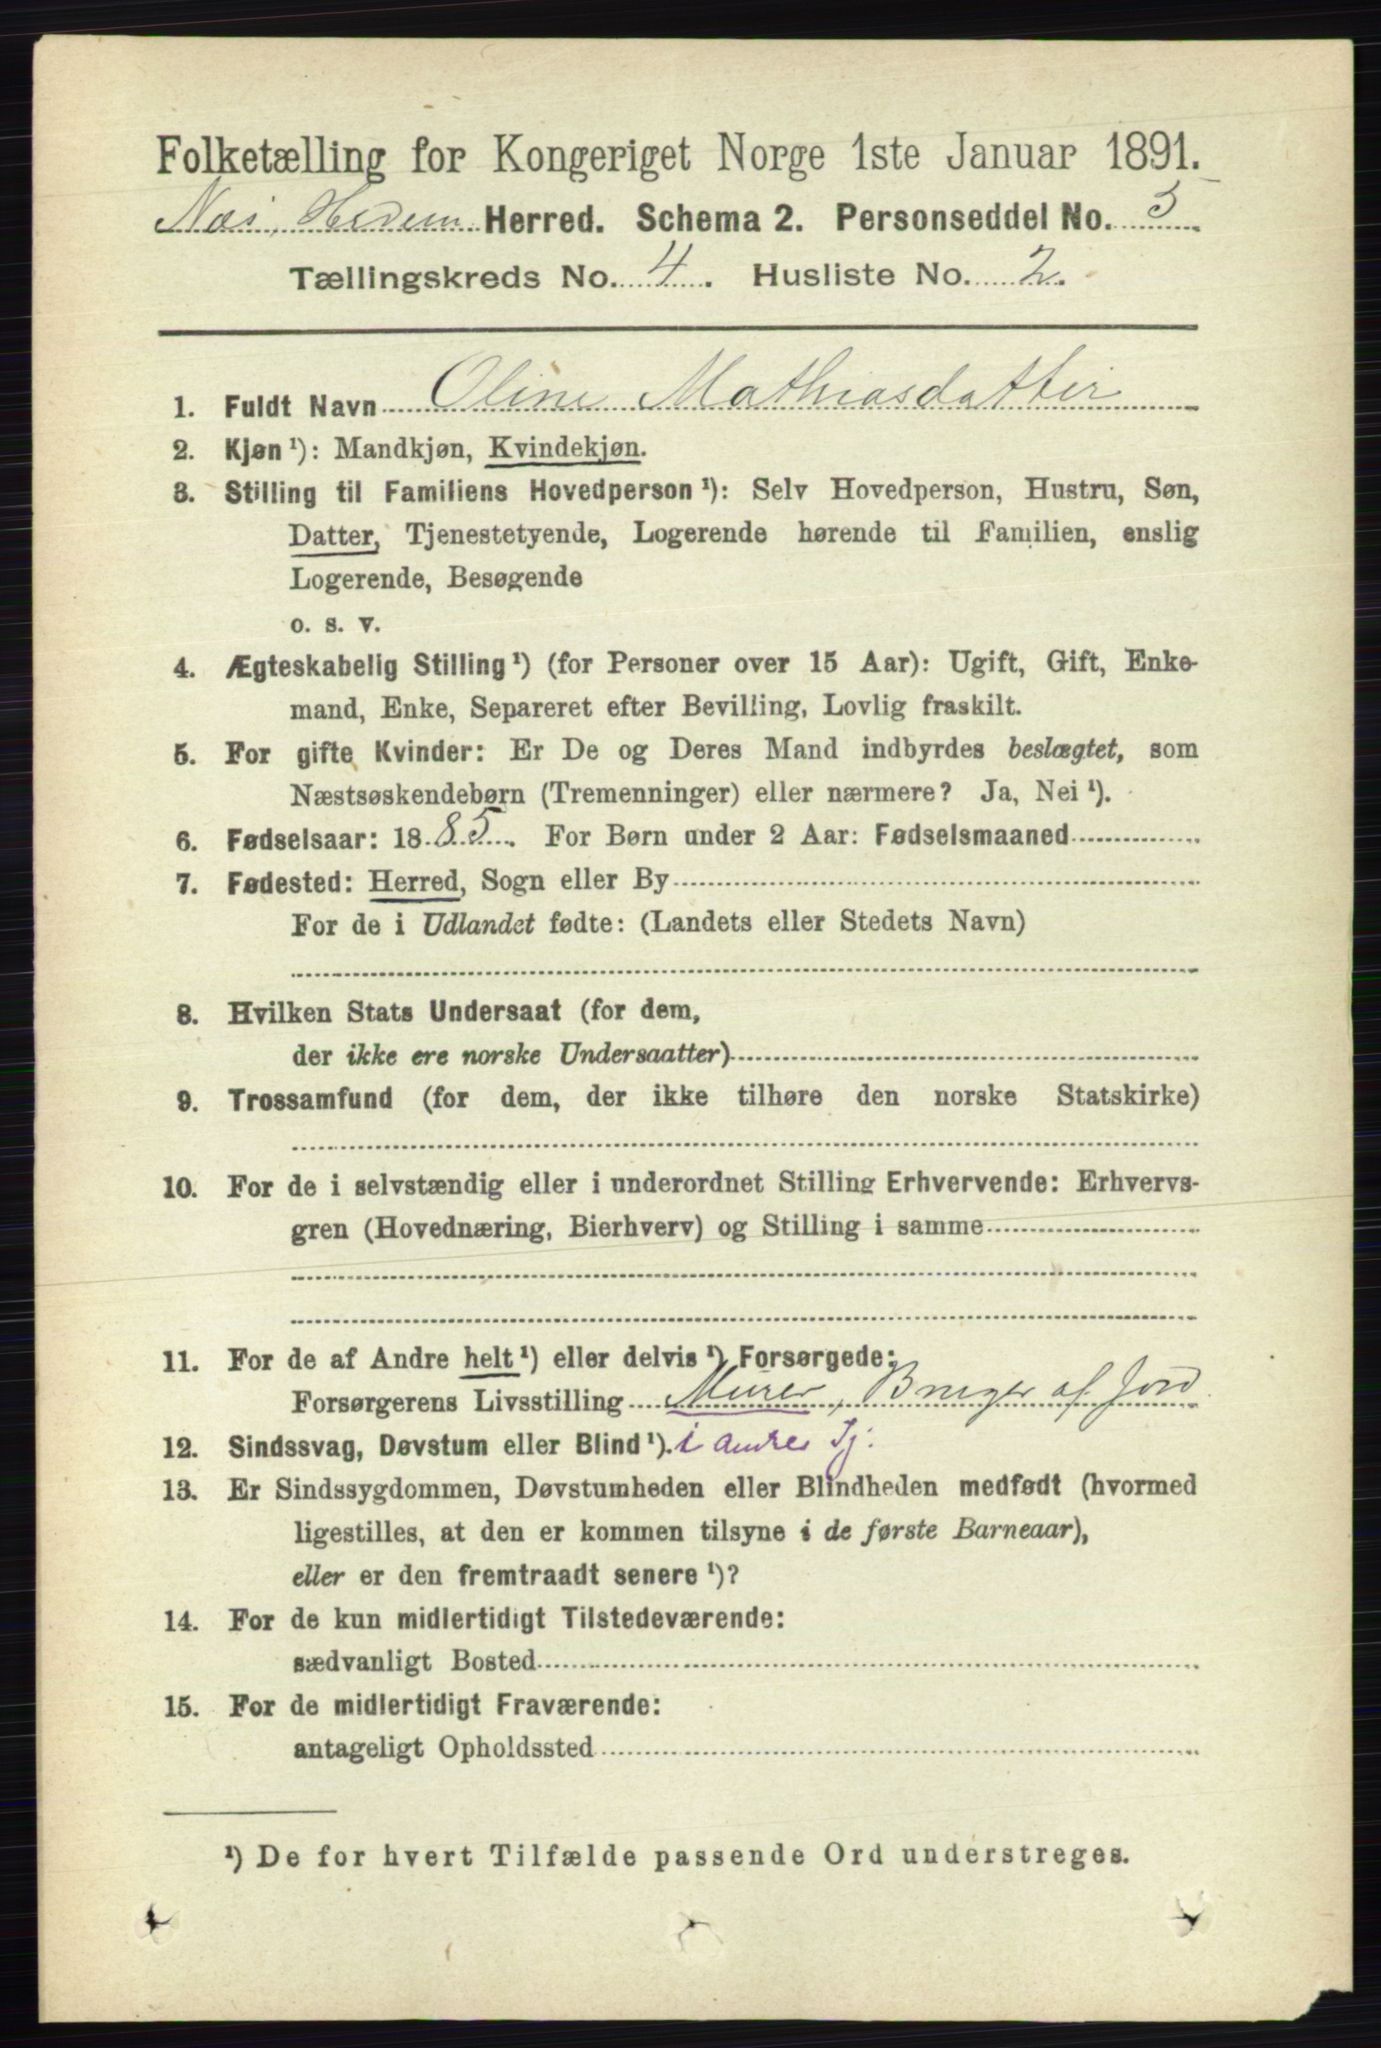 Folketælling for Kongeriget Norge 1ste Januar 1891.
Næs, Hedem Herred. Schema 2. Personseddel No. 5
Tællingskreds No. 4. Husliste No. 2.
1. Fuldt Navn Oline Mathiasdatter
2. Kjøn ¹): Mandkjøn, Kvindekjøn.
3. Stilling til Familiens Hovedperson ¹): Selv Hovedperson, Hustru, Søn,
Datter, Tjenestetyende, Logerende hørende til Familien, enslig
Logerende, Besøgende
o. s. v.
4. Ægteskabelig Stilling ¹) (for Personer over 15 Aar): Ugift, Gift, Enke-
mand, Enke, Separeret efter Bevilling, Lovlig fraskilt.
5. For gifte Kvinder: Er De og Deres Mand indbyrdes beslægtet, som
Næstsøskendebørn (Tremenninger) eller nærmere? Ja, Nei ¹).
6. Fødselsaar: 1885. For Børn under 2 Aar: Fødselsmaaned
7. Fødested: Herred, Sogn eller By
For de i Udlandet fødte: (Landets eller Stedets Navn)
8. Hvilken Stats Undersaat (for dem,
der ikke ere norske Undersaatter)
9. Trossamfund (for dem, der ikke tilhøre den norske Statskirke)
10. For de i selvstændig eller i underordnet Stilling Erhvervende: Erhvervs-
gren (Hovednæring, Bierhverv) og Stilling i samme
11. For de af Andre helt ¹) eller delvis ¹) Forsørgede:
Forsørgerens Livsstilling Murer, Bruger af Jord
12. Sindssvag, Døvstum eller Blind ¹). i andres Tj.
13. Er Sindssygdommen, Døvstumheden eller Blindheden medfødt (hvormed
ligestilles, at den er kommen tilsyne i de første Barneaar),
eller er den fremtraadt senere ¹)?
14. For de kun midlertidigt Tilstedeværende:
sædvanligt Bosted
15. For de midlertidigt Fraværende:
antageligt Opholdssted
¹) De for hvert Tilfælde passende Ord understreges.